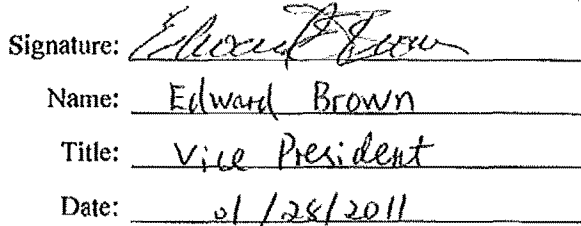 Signature: Edward Brown
Name: Edward Brown
Title: Vice President
Date: 01/28/2011